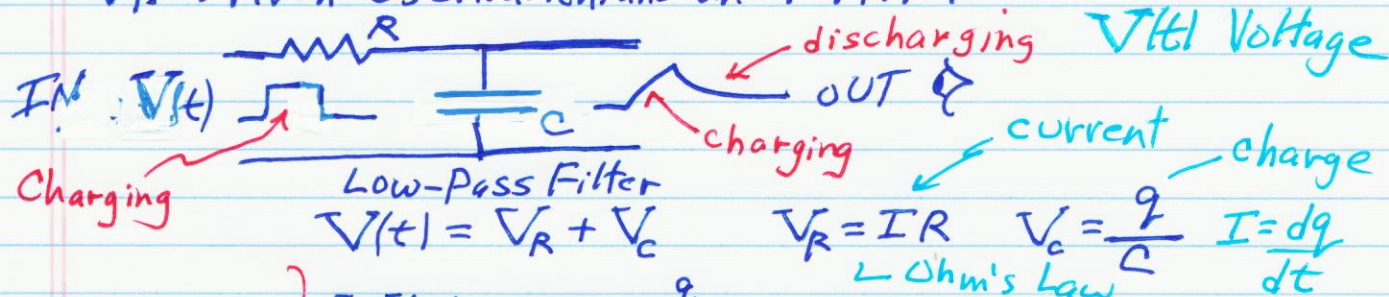 R
discharging V(t) Voltage
IN V(t) OUT
C
charging current
charge
Charging
Low-Pass Filter
V(t) = V_R + V_C V_R = IR V_C = q/C I = dq/dt
Ohm's Law
q